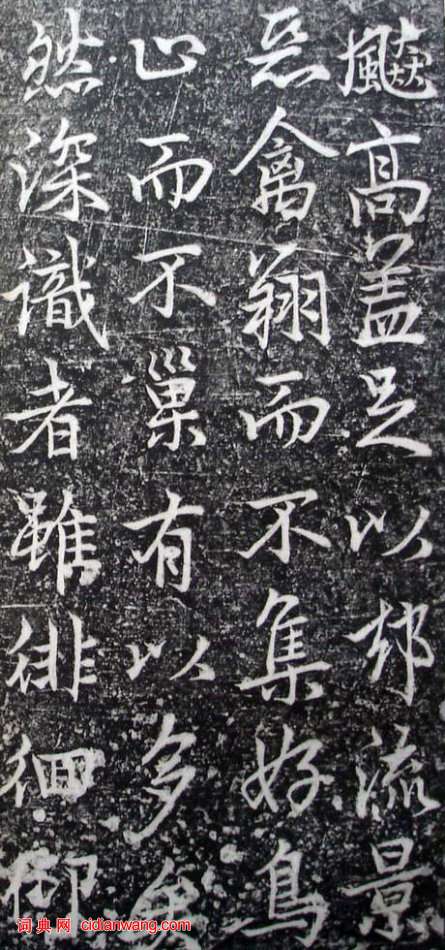 飇高盖足以却流景
惡禽翔而不集好鳥
止而不巢有以多矣
然深識者雖徘徊仰
词典网 cidianwang.com